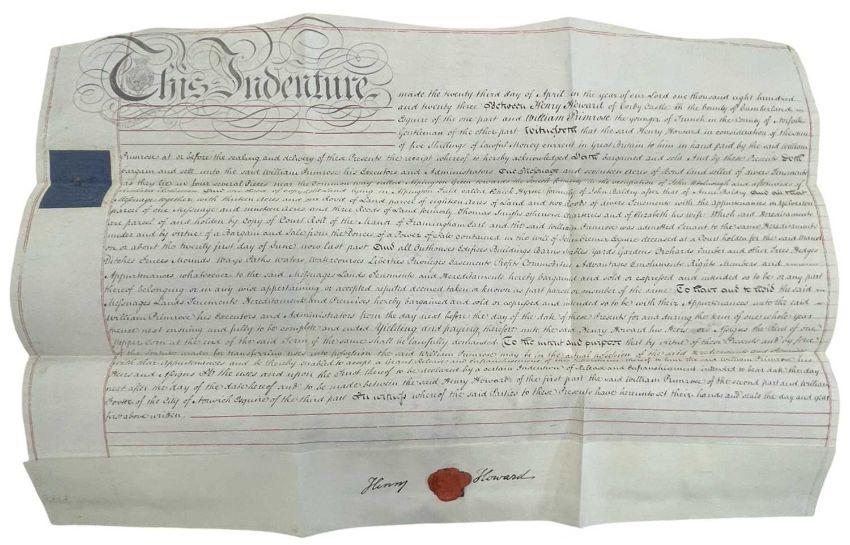 This Indenture
made the twenty third day of April in the year of our Lord one thousand eight hundred
and twenty three Between Henry Howard of Corby Castle in the County of Cumberland
Esquire of the one part and William Primrose the younger of Trunch in the County of Norfolk
Gentleman of the other part Witnesseth that the said Henry Howard in consideration of the sum
of five Shillings of lawful Money current in Great Britain to him in hand paid by the said William
Primrose at or before the sealing and delivery of these Presents the receipt whereof is hereby acknowledged Hath bargained and sold And by these Presents Doth
bargain and sell unto the said William Primrose his Executors and Administrators One Messuage and seventeen acres of Bond land held of divers Tenements
as they lie in four several Pieces near the Common way called
Messuage together with thirteen acres and one Rood of Land parcel of eighteen acres of Land and two Roods of divers Tenements with the appurtenances in
parcel of one Messuage and nineteen acres and three Roods of Land formerly Thomas Smiths otherwise and of Elizabeth his wife Which said Hereditaments
are parcel of and holden by Copy of Court Roll of the Manor of Framingham Earl and the said William Primrose was admitted Tenant to the same Hereditaments
under and by virtue of a Bargain and Sale from the Donees of a Power of Sale contained in the Will of John Esquire deceased at a Court holden for the said Manor
on or about the twenty first day of June now last past And all Outhouses Edifices Buildings Barns Stables Yards Gardens Orchards Timber and other Trees Hedges
Ditches Fences Mounds Ways Paths Waters Watercourses Liberties Privileges Easements Profits Commodities Advantages Emoluments Rights Members and
Appurtenances whatsoever to the said Messuages Lands Tenements and Hereditaments hereby bargained and sold or expressed and intended so to be or any part
thereof belonging or in any wise appertaining or accepted reputed deemed taken or known as part parcel or member of the same To Have and to Hold the said
Messuages Lands Tenements Hereditaments and Premises hereby bargained and sold or expressed and intended so to be with their Appurtenances unto the said
William Primrose his Executors and Administrators from the day next before the day of the date of these Presents for and during the term of one whole year
thence next ensuing and fully to be complete and ended Yielding and paying therefore unto the said Henry Howard his Heirs and Assigns the Rent of one
Pepper Corn at the end of the said Term if the same shall be lawfully demanded To the intent and purpose that by virtue of these Presents and by force
of the Statute made for transferring uses into possession the said William Primrose may be in the actual possession of the said Hereditaments and
with their appurtenances and be thereby enabled to accept a Grant Release and William Primrose his
Heirs and Assigns To the uses and upon the Trust thereof to be declared by a certain Indenture of Release and Enfranchisement intended to bear date the day
next after the day of the date hereof and to be made between the said Henry Howard of the first part the said William Primrose of the second part and William
Foster of the City of Norwich Esquire of the third part In witness whereof the said Parties to these Presents have hereunto set their hands and seals the day and year
first above written.
Henry Howard